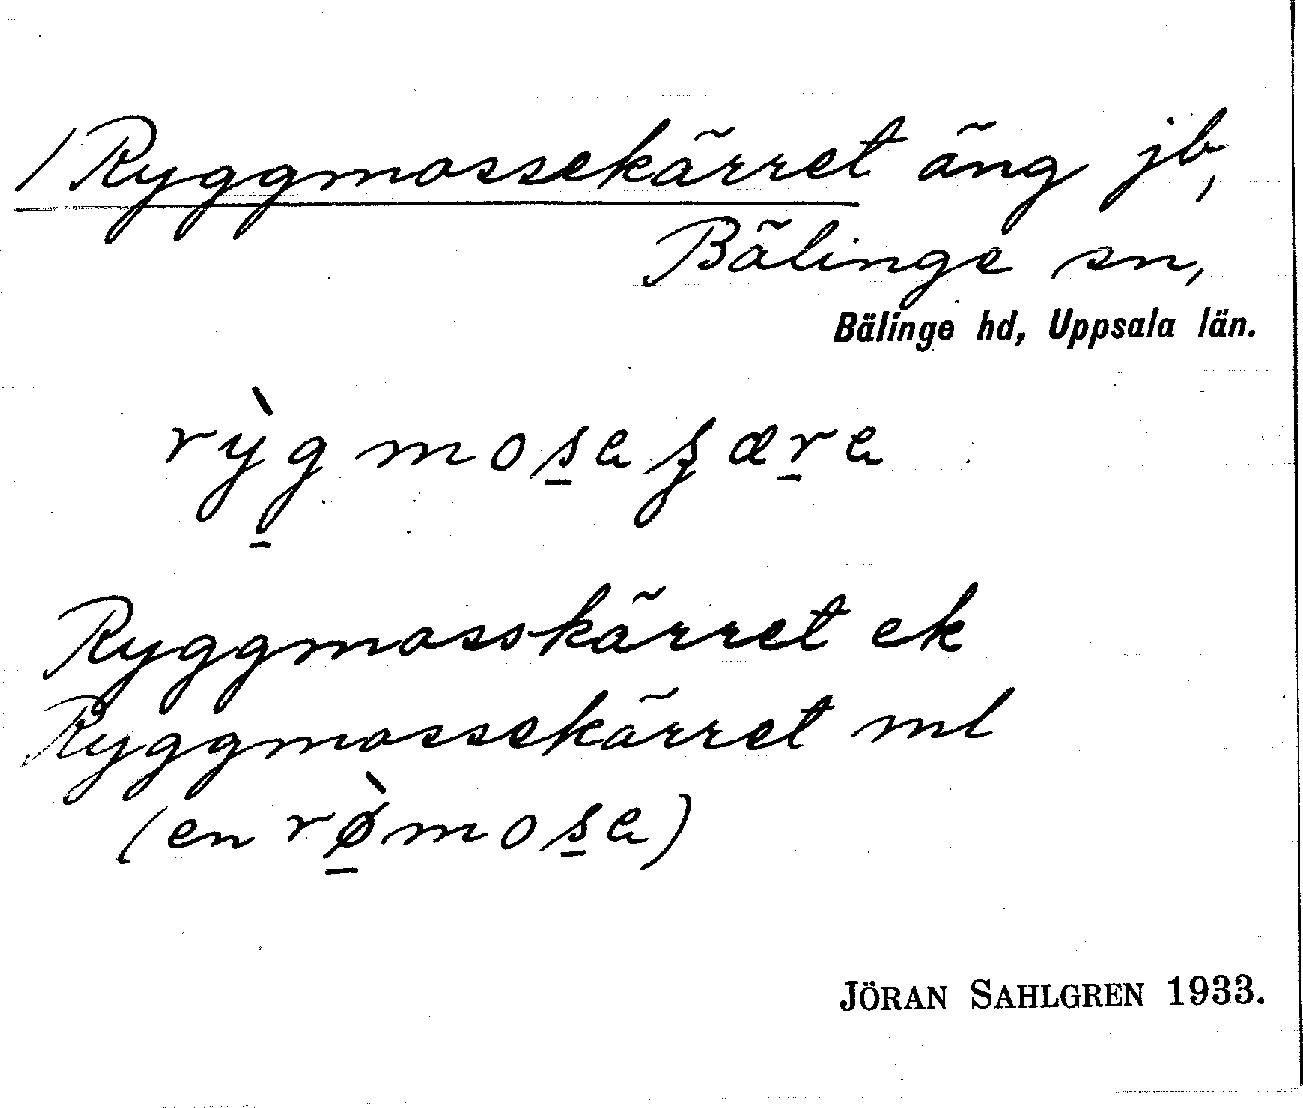 / Ryggmossekärret äng jb,
Bälinge sn,
Bälinge hd, Uppsala län.
rỳg mosa ʂæra
Ryggmosskärret ek
Ryggmossekärret ml
(en rø̀mosa)
JÖRAN SAHLGREN 1933.